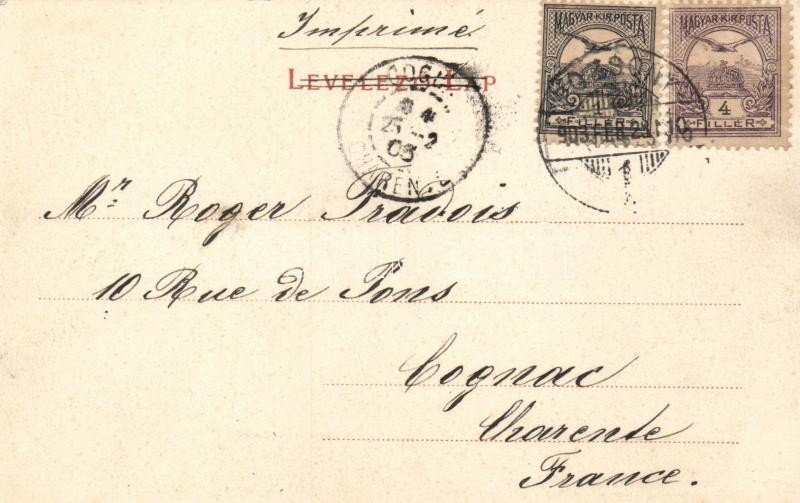 Imprimé
MAGYAR·KIR·POSTA MAGYAR·KIR·POSTA
LEVELEZŐ-LAP
4
FILLÉR FILLÉR
903 FEB. 2
03
CHARENTE
Mr Roger Pradois
10 Rue de Pons
Cognac
Charente
France.